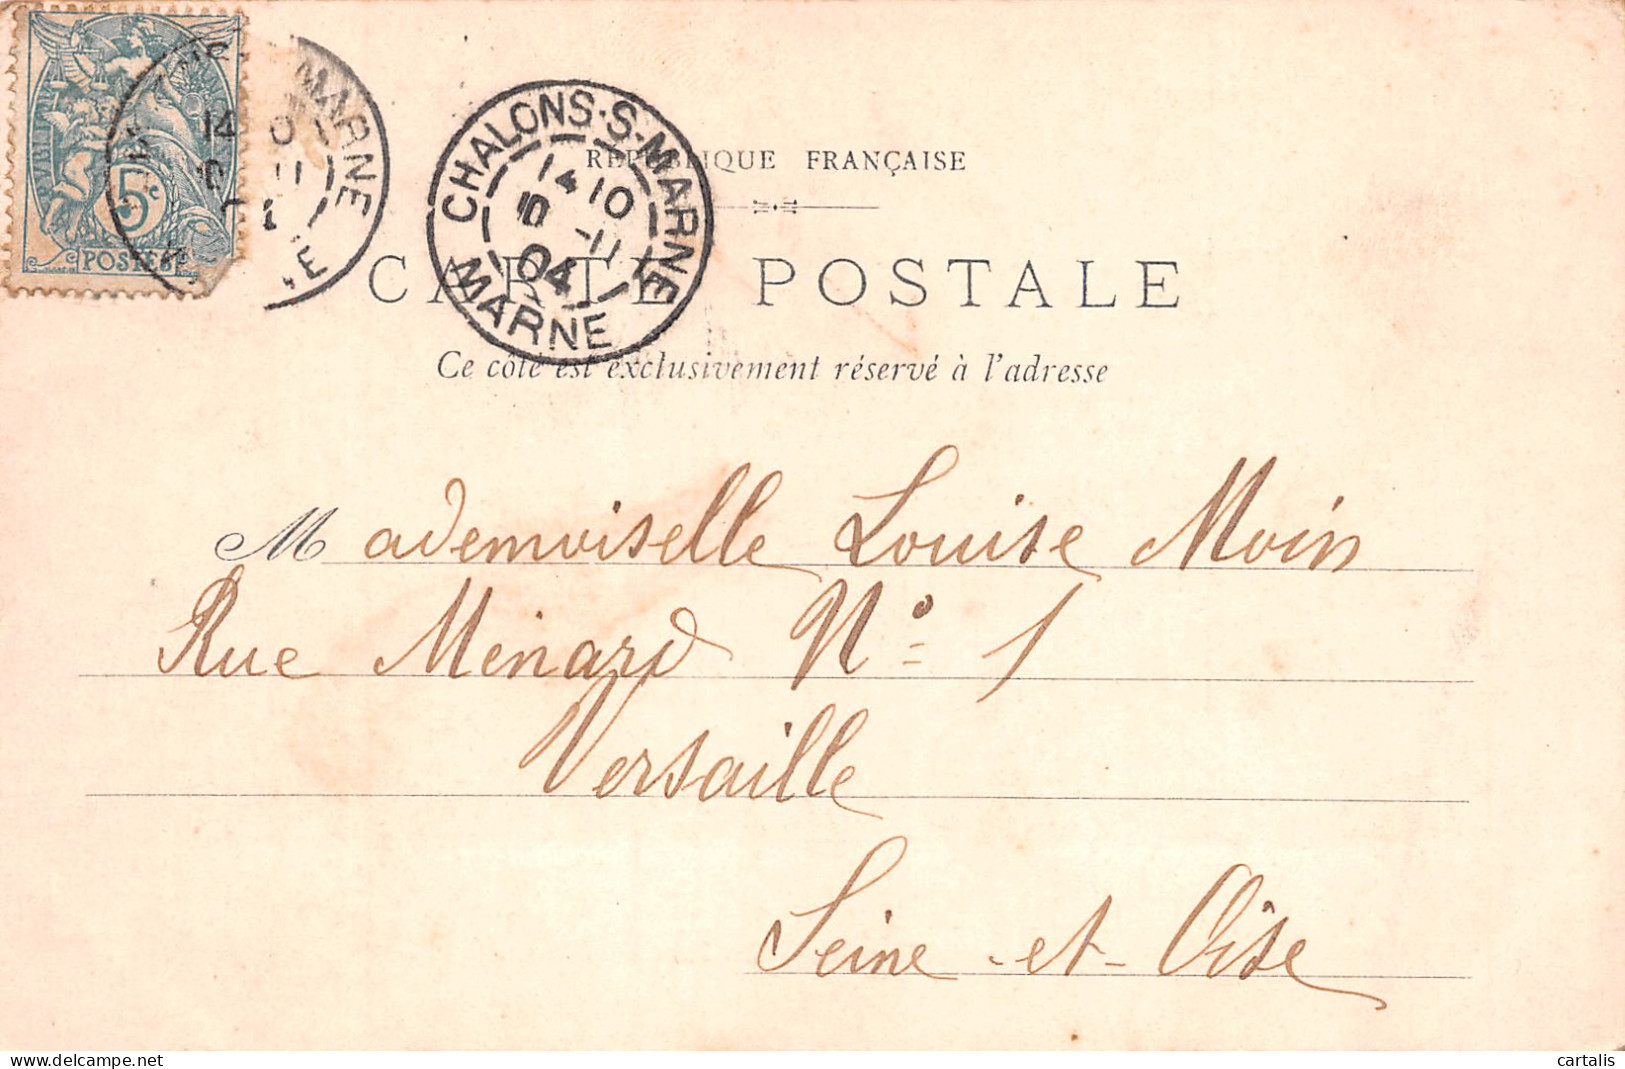 5c
POSTES
MARNE
CHALONS-S-MARNE
14 10
10 -11
04
MARNE
RÉPUBLIQUE FRANÇAISE
CARTE POSTALE
Ce côté est exclusivement réservé à l'adresse
Mademoiselle Louise Moin
Rue Ménard N° 1
Versaille
Seine-et-Oise
www.delcampe.net
cartalis